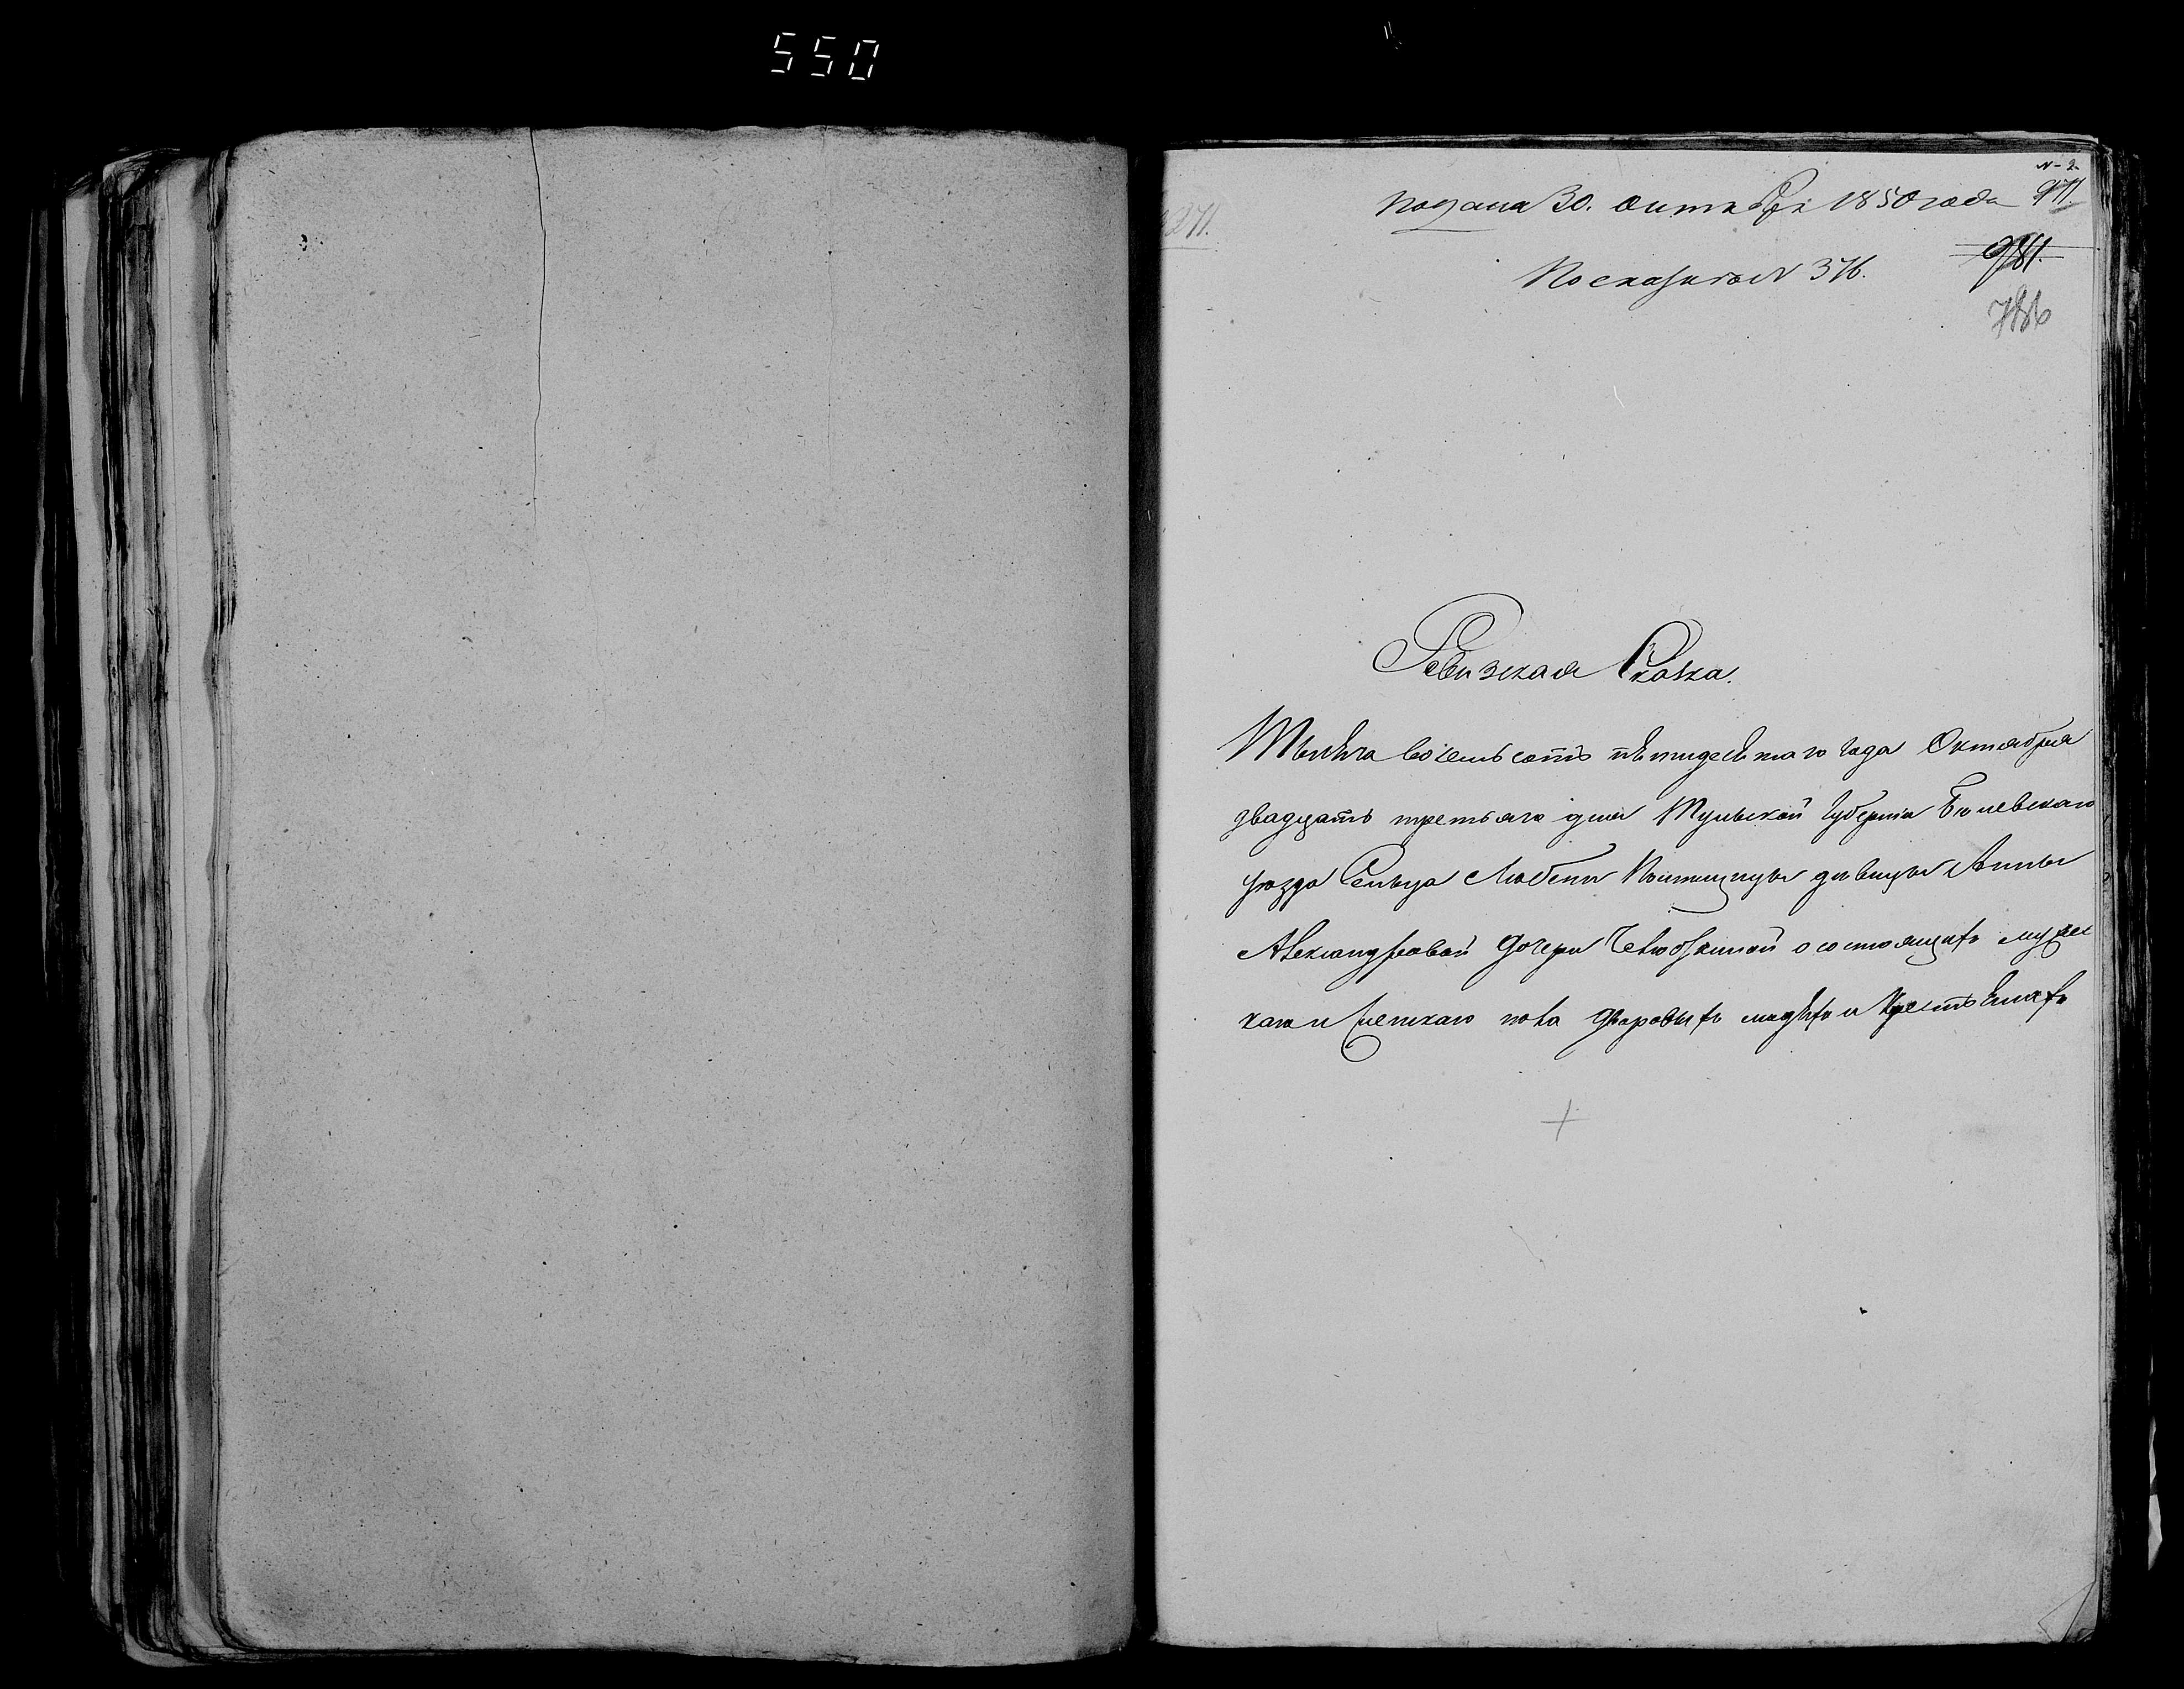 550
N 2.
подана 30. октября 1850 года 971.
271.
По сказкѣ N 376.
981.
786
Ревизская Сказка.
Тысяча восемь сотъ пятидесятаго года Октября
двадцать третьяго дня Тульской Губерніи Бѣлевскаго
уѣзда Сельца помѣщицы дѣвицы Анны
Александровой дочери о состоящихъ мужес
каго и женскаго пола дворовыхъ людяхъ и крестьянахъ